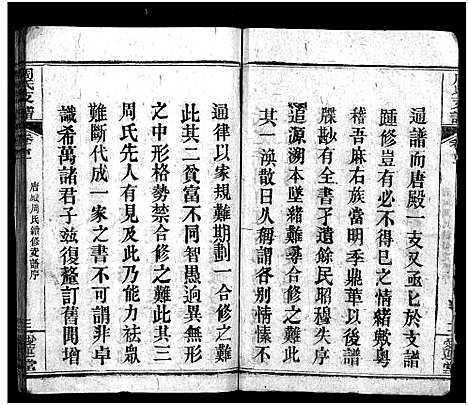 通譜而唐殿一支又亟亟於支譜
踵修豈有必不得已之情緒歟粵
稽吾麻右族當明季鼎革以後譜
牒尠有全書孑遺餘民昭穆失序
追源溯本墜緒難尋合修之難此
其一渙散日久稱謂各別情愫不
通律以家規難期劃一合修之難
此其二貧富不同智愚逈異無形
之中形格勢禁合修之難此其三
周氏先人有見及此乃能力袪眾
難斷代成一家之書不可謂非卓
識希萬諸君子茲復釐訂舊聞增
周氏支譜
唐殿周氏續修支譜序
三
愛蓮堂